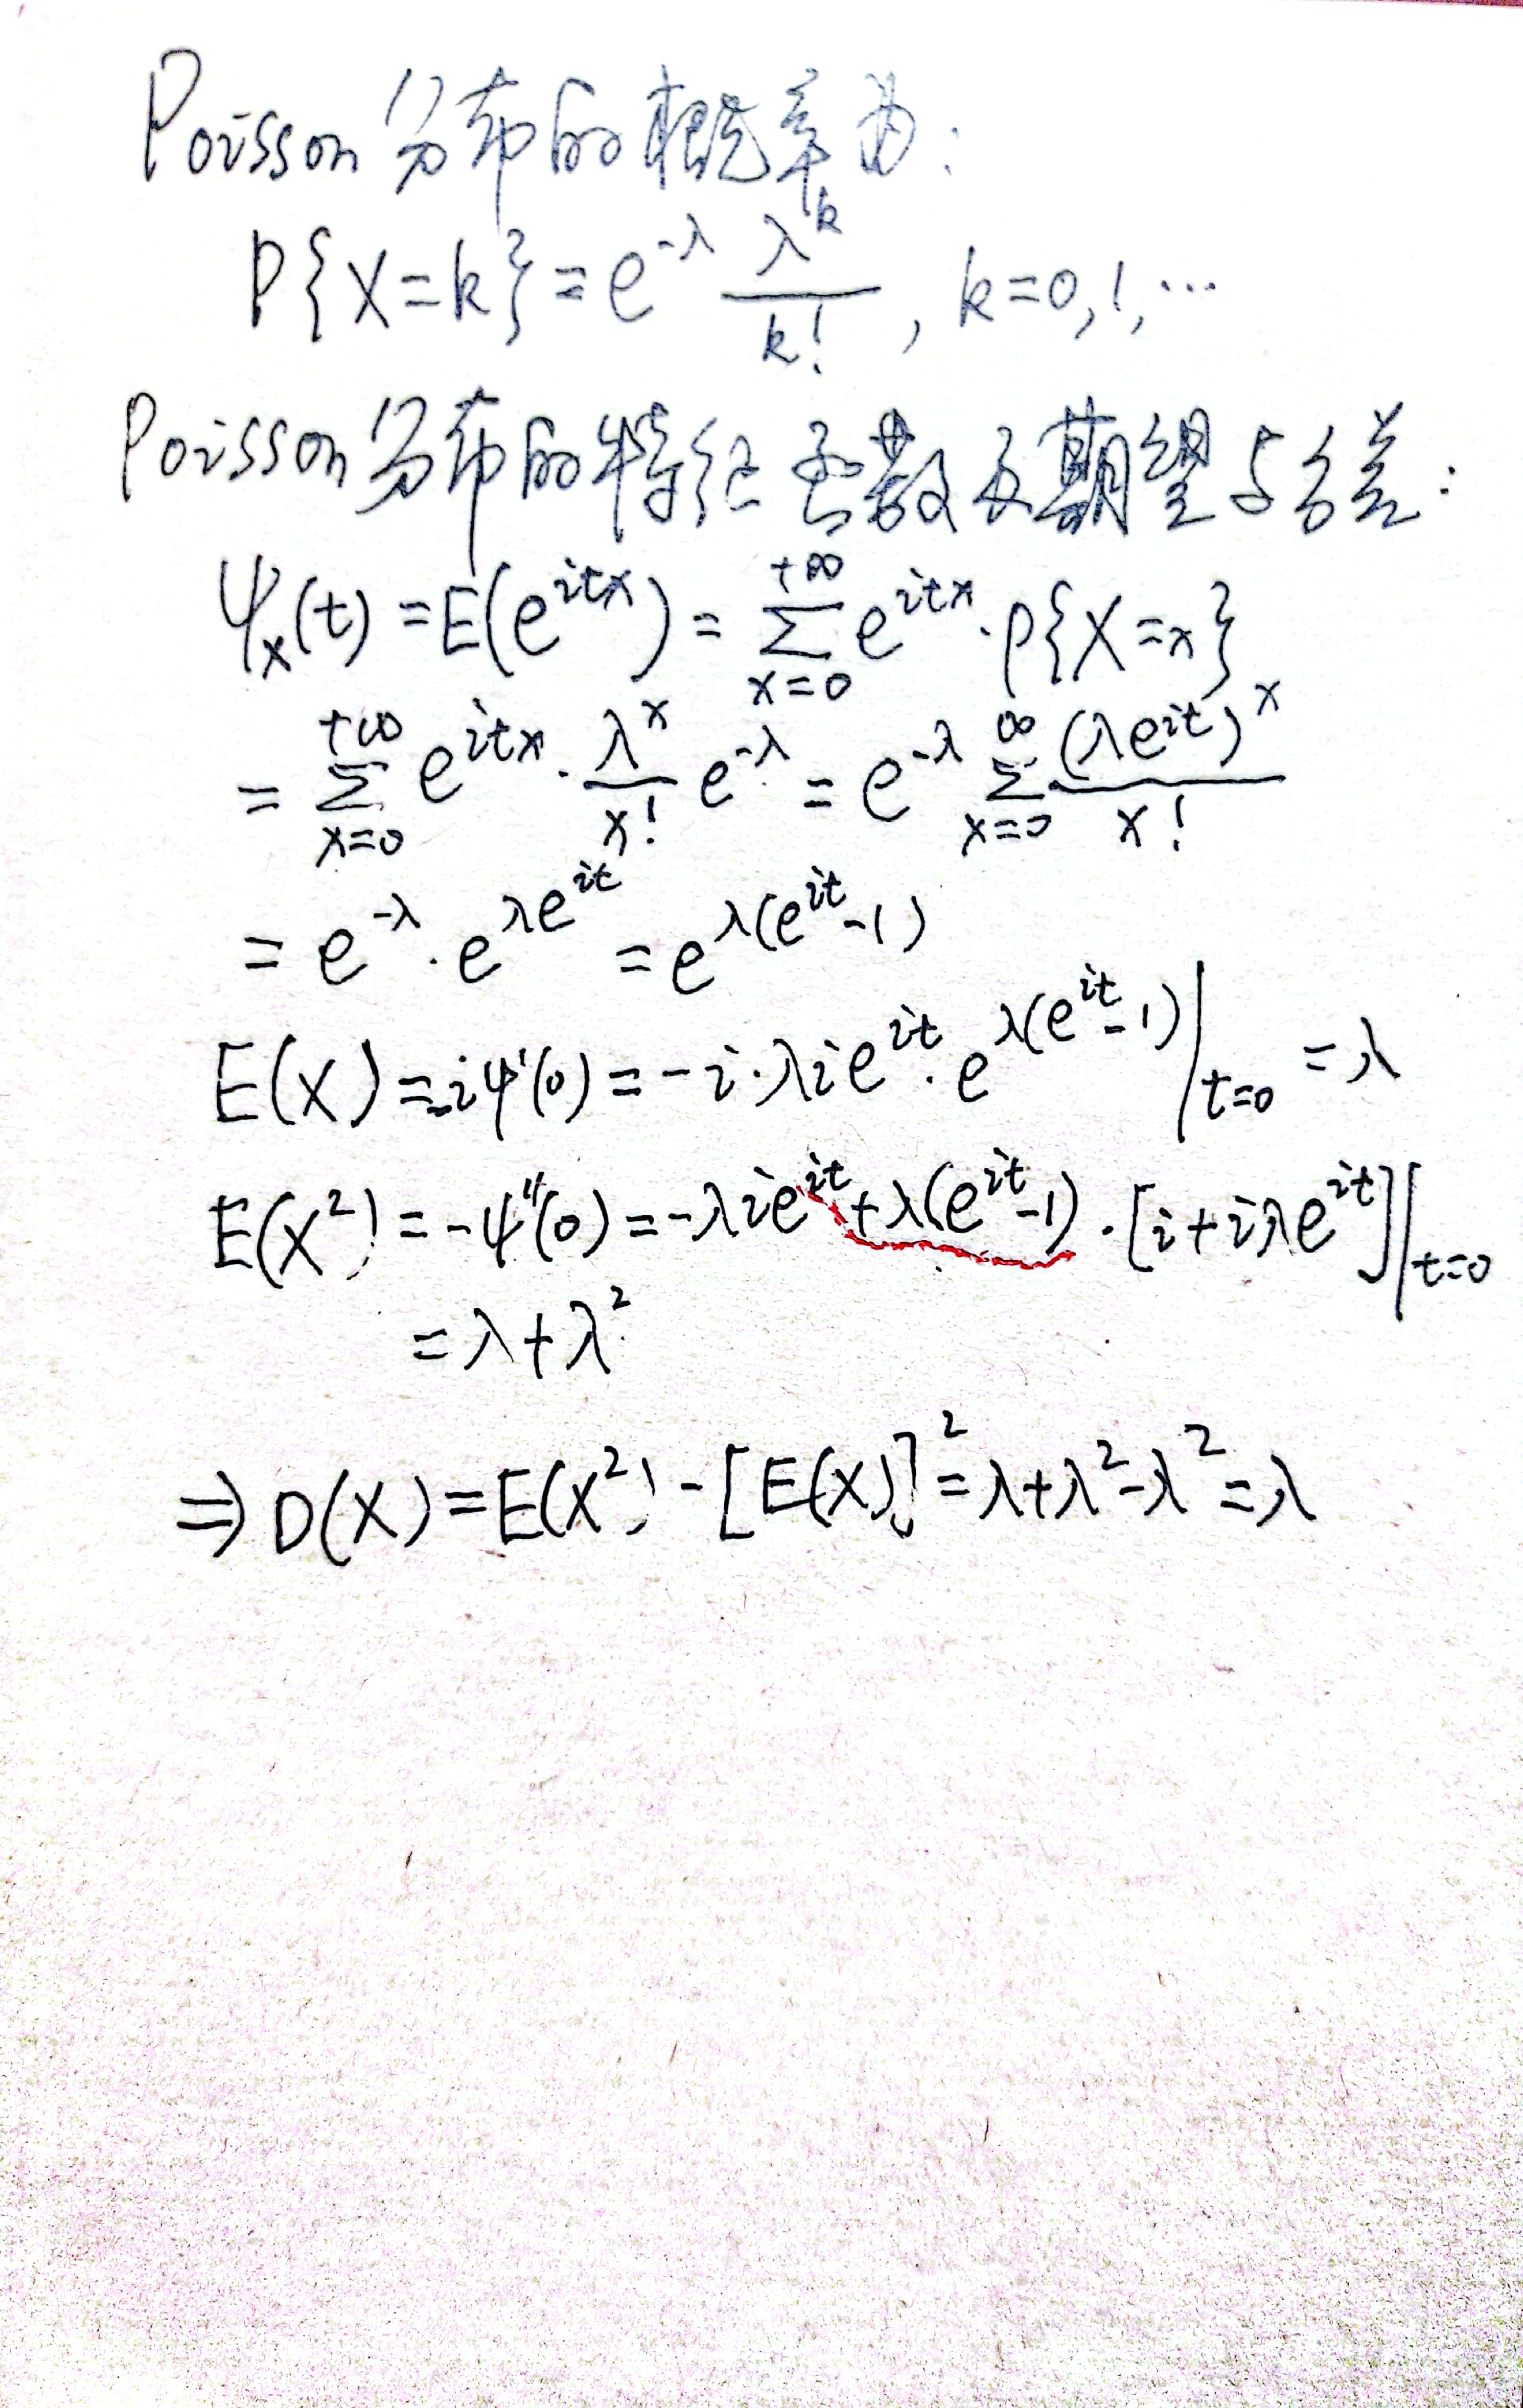 Poisson分布的概率为:
P{X=k}=e^{-λ} \frac{λ^k}{k!}, k=0,1,…
Poisson分布的特征函数及期望与方差:
Ψ_X(t)=E(e^{itx})=\sum_{x=0}^{+∞} e^{itx}·P{X=x}
=\sum_{x=0}^{+∞} e^{itx}·\frac{λ^x}{x!} e^{-λ}=e^{-λ}\sum_{x=0}^{∞}\frac{(λe^{it})^x}{x!}
=e^{-λ}·e^{λe^{it}}=e^{λ(e^{it}-1)}
E(X)=-iΨ'(0)=-i·λie^{it}·e^{λ(e^{it}-1)}|_{t=0}=λ
E(X^2)=-Ψ''(0)=-λie^{it+λ(e^{it}-1)}·[i+iλe^{it}]|_{t=0}
=λ+λ^2
⇒D(X)=E(X^2)-[E(X)]^2=λ+λ^2-λ^2=λ